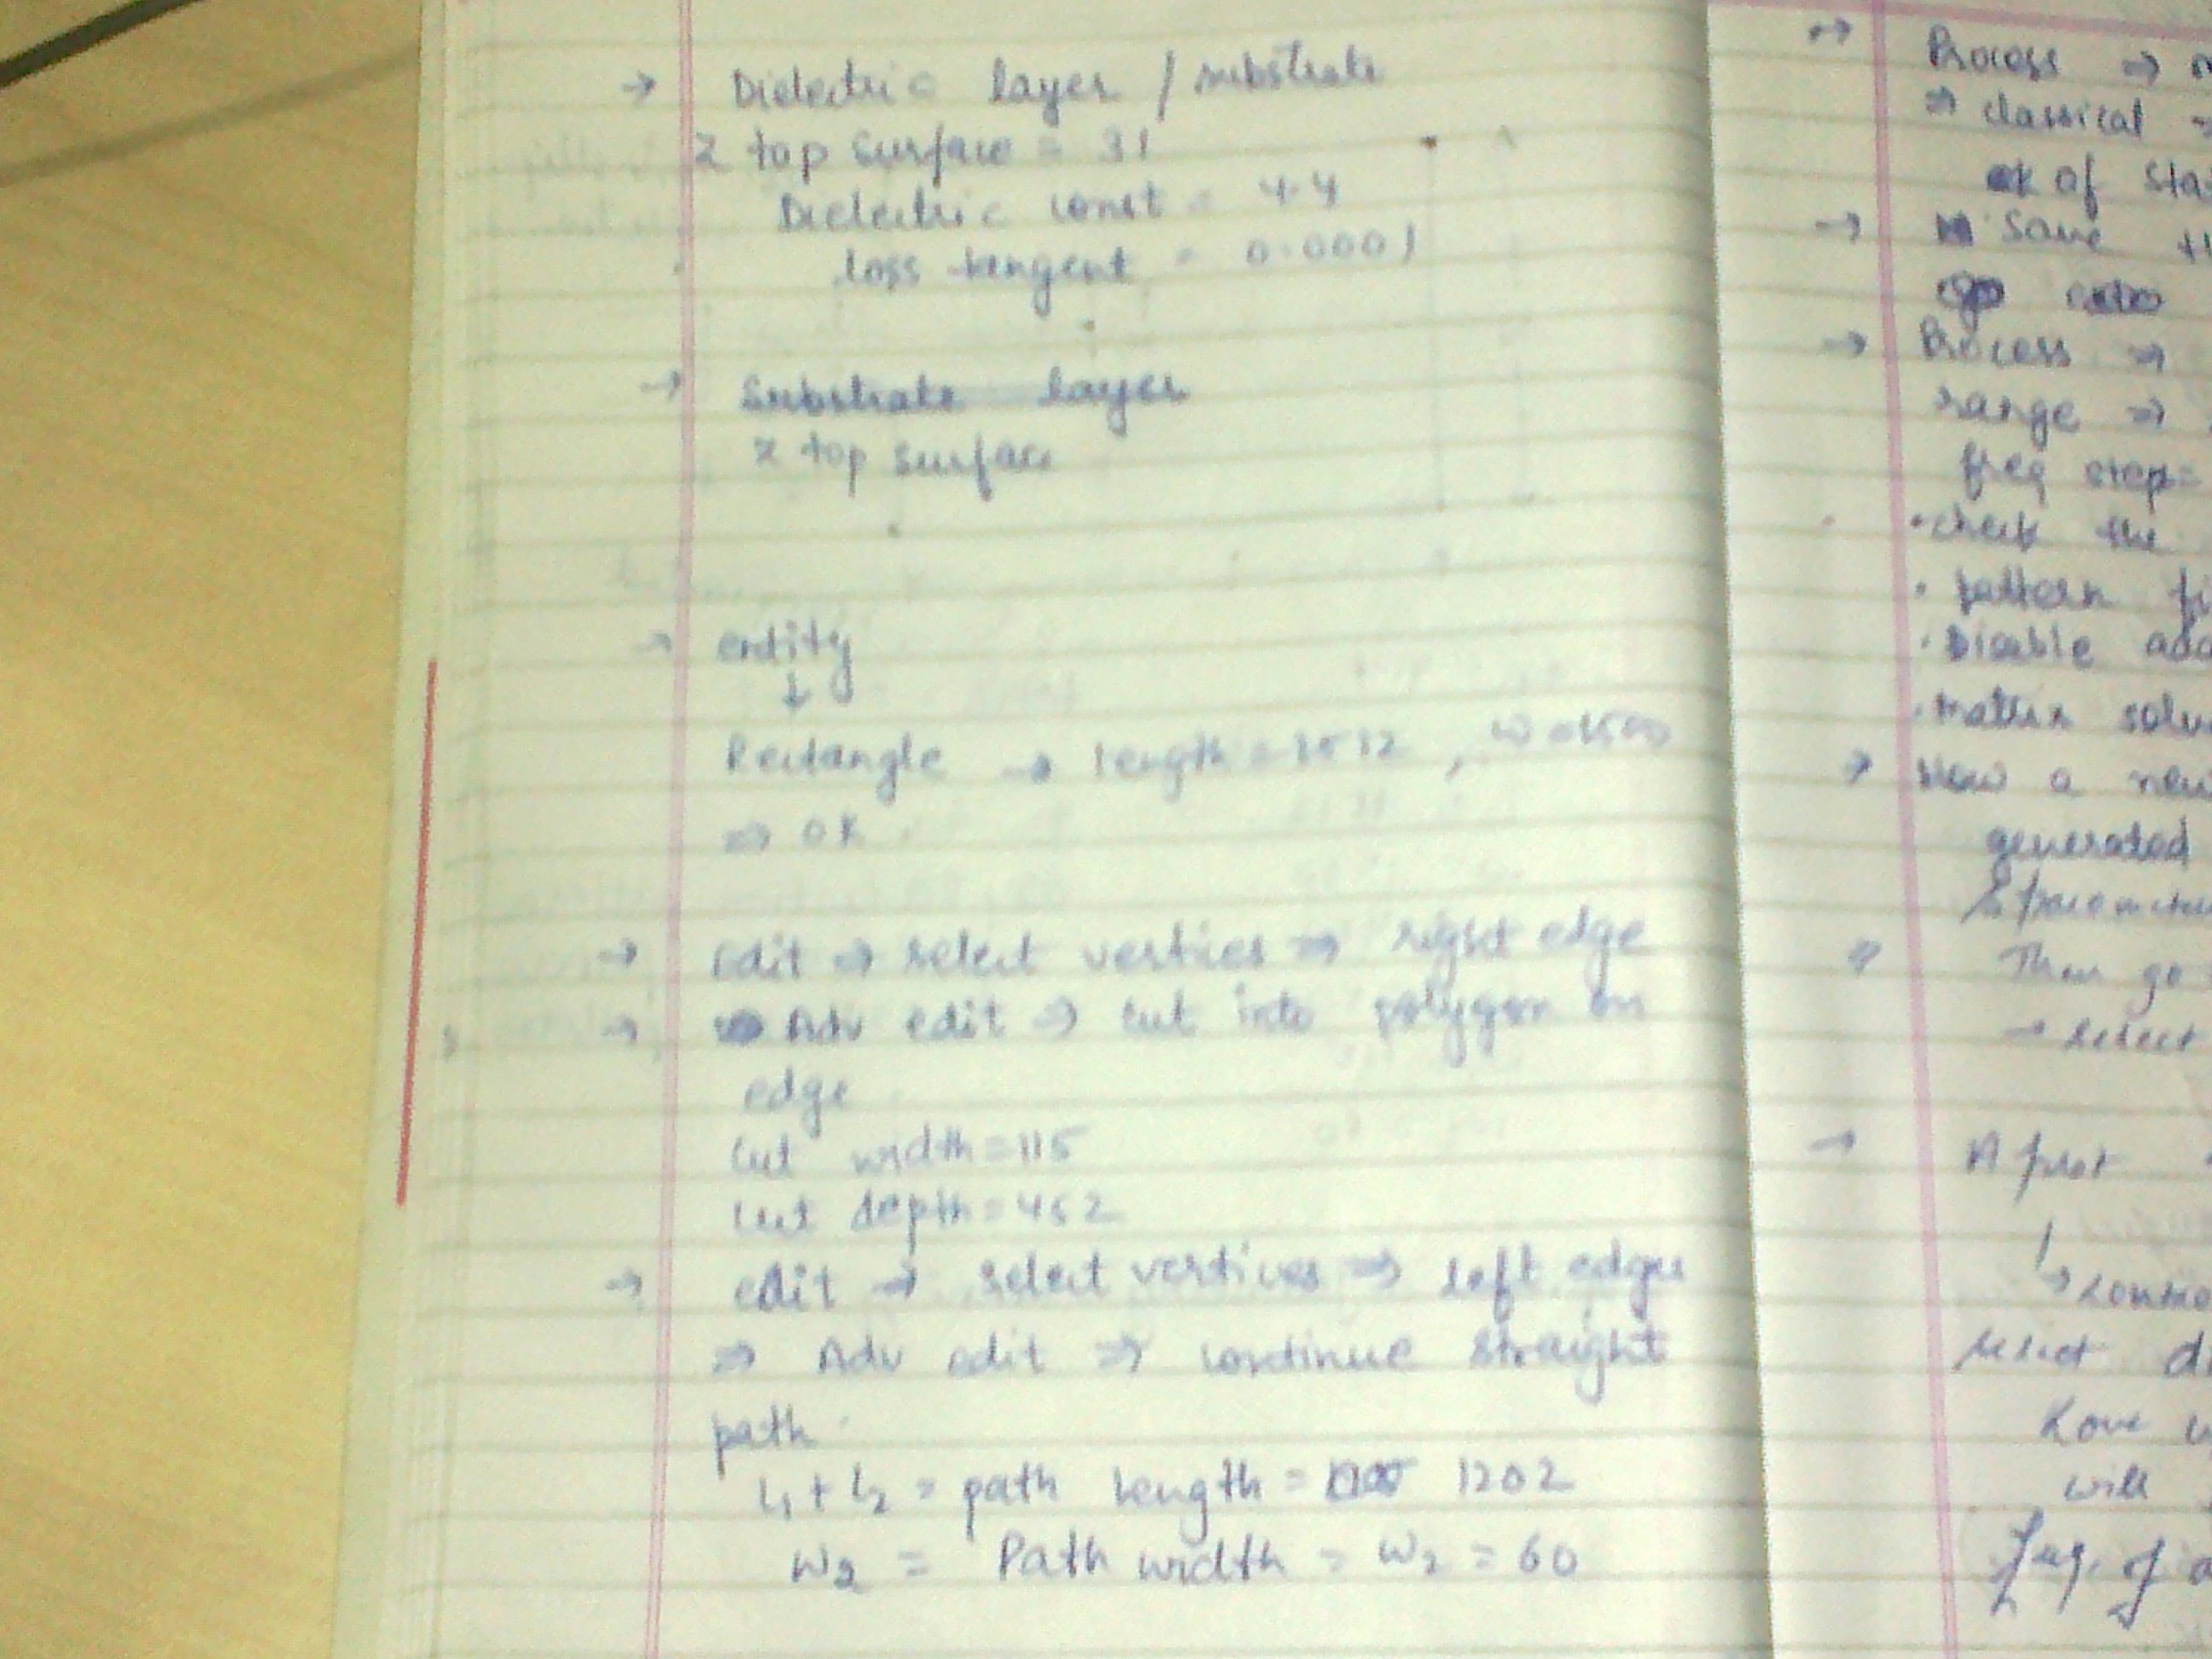 → Dielectric layer / substrate
z top surface = 31
Dielectric const = 4.4
loss tangent = 0.0001
→ Substrate layer
z top surface
→ entity
↓
Rectangle → length =
⇒ OK
→ Edit ⇒ select vertices ⇒ right edge
→ Adv edit ⇒ cut into polygon on
edge
Cut width = 115
Cut depth = 452
→ edit → select vertices ⇒ left edge
⇒ Adv edit ⇒ continue straight
path
L1 + L2 = path length = 1202
W2 = Path width = W2 = 60
Process ⇒
⇒ classical
of
→ Save
→ Process ⇒
range ⇒
freq step =
• check the
• pattern
• Disable
• Matrix
→ Now a
generated
Then go
→ select
→
select
will